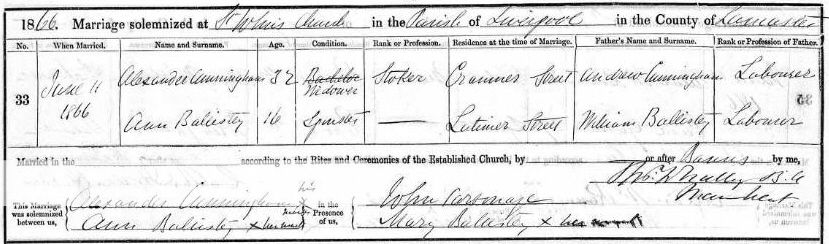 1866. Marriage solemnized at St John's Church in the Parish of Liverpool in the County of Lancaster
No. When Married. Name and Surname. Age. Condition. Rank or Profession. Residence at the time of Marriage. Father's Name and Surname. Rank or Profession of Father.
33 June 11 1866 Alexander Cunningham 32 Bachelor Widower Stoker Cranmer Street Andrew Cunningham Labourer
Ann Ballesty 16 Spinster — Latimer Street William Ballesty Labourer
Married in the according to the Rites and Ceremonies of the Established Church, by or after Banns by me,
This Marriage was solemnized between us, Alexander Cunningham x his in the Presence of us, John Parsonage
Ann Ballesty x her mark Mary Ballesty x her mark